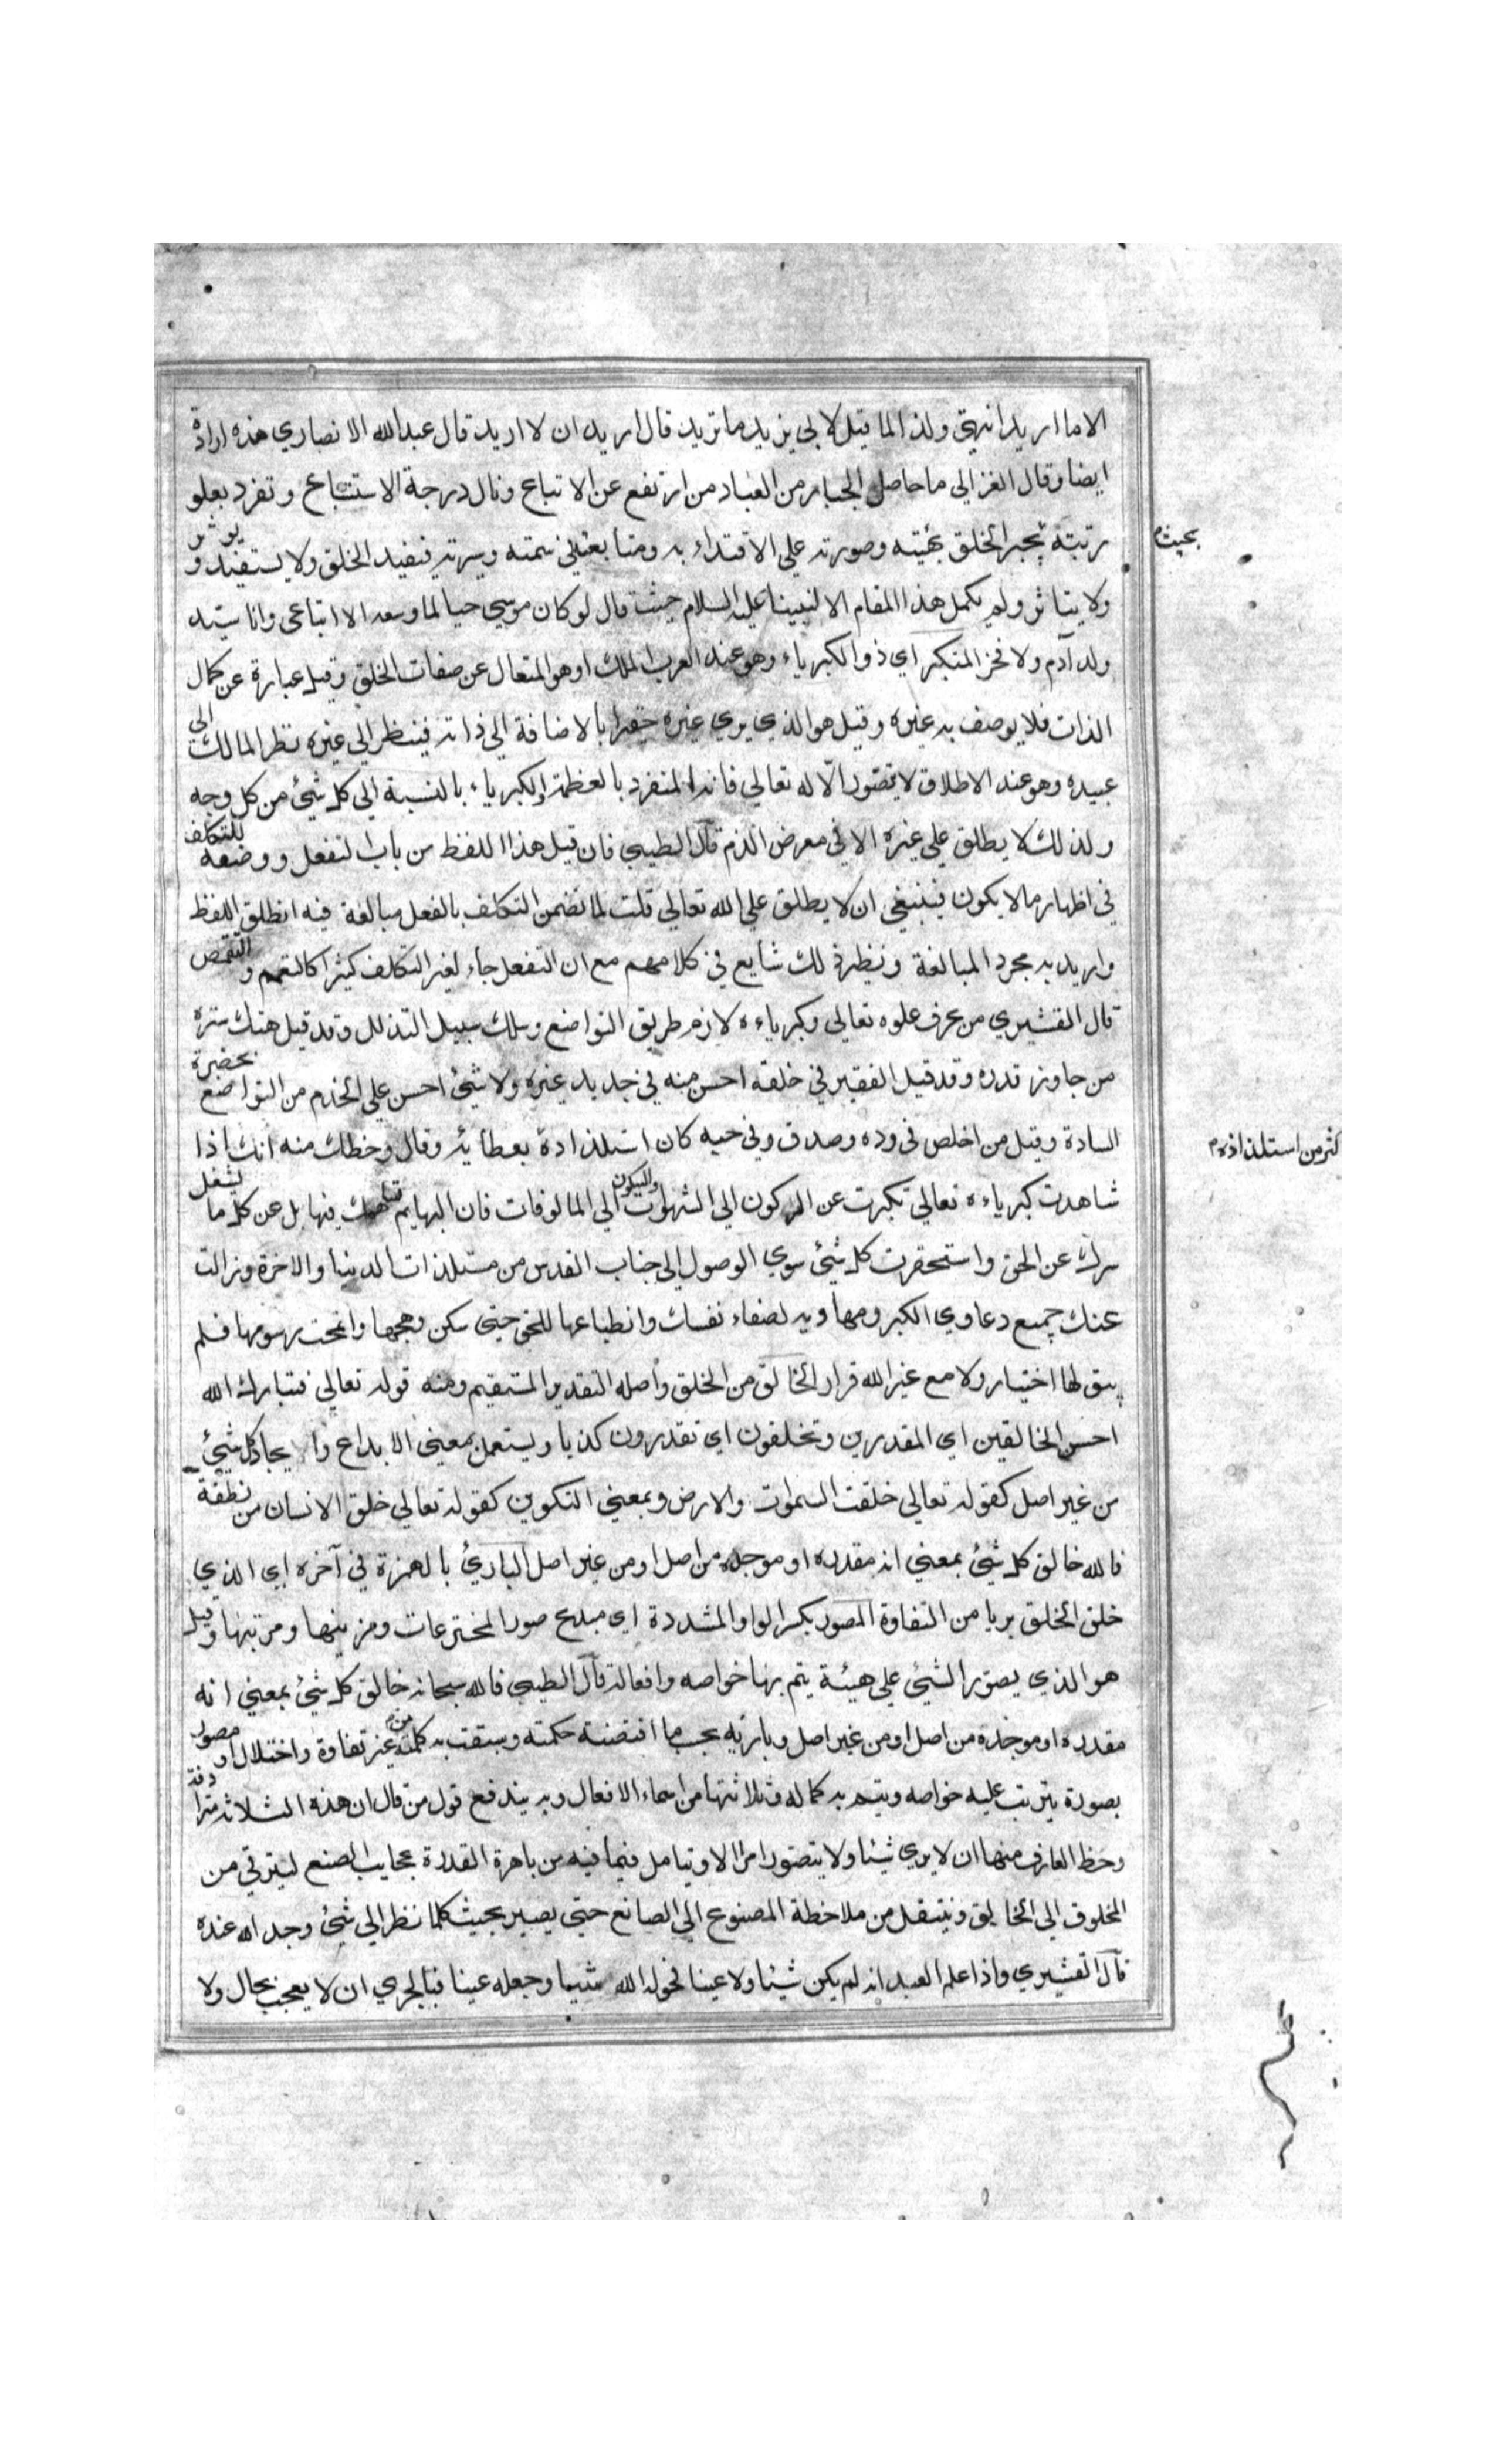 الا ما اريد انتهى ولذا لما قيل لابي يزيد ما تريد قال اريد ان لا اريد قال عبد الله الانصاري هذه ارادة
ايضا وقال الغزالي ما حاصل الجبار من العباد من ارتفع عن الاتباع ونال درجة الاستتباع وتفرد بعلو
بحيث
رتبته يجبر الخلق بهيئته وصورته علي الاقتداء به ومتابعته في سمته وسيرته فيفيد الخلق ولا يستفيد و يوثر
ولا يتاثر ولم يكمل هذا المقام الا لنبينا عليه السلام حيث قال لو كان موسي حيا لما وسعه الا اتباعي وانا سيد
ولد آدم ولا فخر المتكبر اي ذو الكبرياء وهو عند العرب الملك او هو المتعال عن صفات الخلق وقيل عبارة عن كمال
الذات فلا يوصف به غيره وقيل هو الذي يري غيره حقيرا بالاضافة الي ذاته فينظر الي غيره نظر المالك الي
عبيده وهو عند الاطلاق لا يتصور الا له تعالي فانه المنفرد بالعظمة والكبرياء بالنسبة الي كل شئ من كل وجه
ولذلك لا يطلق علي غيره الا في معرض الذم قال الطيبي فان قيل هذا اللفظ من باب التفعل ووضعه للتكلف
في اظهار ما لا يكون فينبغي ان لا يطلق علي الله تعالي قلت لما تضمن التكلف بالفعل مبالغة فيه اطلق اللفظ
واريد به مجرد المبالغة ونظير ذلك شايع في كلامهم مع ان التفعل جاء لغير التكلف كثيرا كالتعمم و التقمص
قال القشيري من عرف علوه تعالي وكبرياءه لازم طريق التواضع وسلك سبيل التذلل وقد قيل هتك ستره
من جاوز قدره وقد قيل الفقير في خلقه احسن منه في جديد غيره ولا شئ احسن علي الخدم من التواضع بحضرة
السادة وقيل من اخلص في وده وصدق وفي حبه كان استلذاذة بعطائه وقال وحظك منه انك اذا
كثر من استلذاذه
شاهدت كبرياءه تعالي تكبرت عن الركون الي الشهوات والسكون الي المالوفات فان البهايم تساهمك فيها بل عن كل ما يشغل
سرك عن الحق واستحقرت كل شئ سوي الوصول الي جناب القدس من مستلذات الدنيا والاخرة وزالت
عنك جميع دعاوي الكبر ومهاويه لصفاء نفسك وانطباعها للحق حتي سكن وهجها وانمحت رسومها فلم
يبق لها اختيار ولا مع غير الله قرار الخالق من الخلق واصله التقدير المستقيم ومنه قوله تعالي فتبارك الله
احسن الخالقين اي المقدرين وتخلقون اي تقدرون كذبا ويستعمل بمعني الابداع وايجاد كل شئ
من غير اصل كقوله تعالي خلقت السموات والارض وبمعني التكوين كقوله تعالي خلق الانسان من نطفة
فالله خالق كل شئ بمعني انه مقدره او موجده من اصل او من غير اصل البارئ بالهمزة في آخره اي الذي
خلق الخلق بريا من التفاوة المصور بكسر الواو المشددة اي مبدع صور المخترعات ومزينها ومرتبها وقيل
هو الذي يصور الشئ علي هيئة يتم بها خواصه وافعاله قال الطيبي فالله سبحانه خالق كل شئ بمعني انه
مقدره او موجده من اصل او من غير اصل وبارئه بحسب ما اقتضته حكمته وسبقت به كلمته من غير تفاوة واختلال او مصور
بصورة يترتب عليه خواصه ويتم به كماله وثلاثتها من اسماء الافعال وبه يندفع قول من قال ان هذه الثلاثة مترادفة
وحظ العارف منها ان لا يري شيئا ولا يتصور امرا الا ويتامل فيما فيه من باهرة القدرة عجايب الصنع ليترقي من
المخلوق الي الخالق وينتقل من ملاحظة المصنوع الي الصانع حتي يصير بحيث كلما نظر الي شئ وجد الله عنده
قال القشيري واذا علم العبد انه لم يكن شيئا ولا عينا فحوله الله شيئا وجعله عينا فبالحري ان لا يعجب بحال ولا